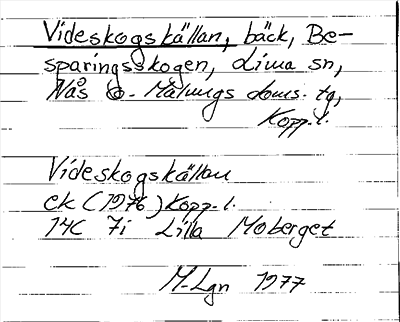 Videskogskällan, bäck, Be-
sparingsskogen, Lima sn,
Nås o. Malungs doms. tg,
Kopp. l.
Videskogskällan
ek (1976) Kopp. l.
14C 7i Lilla Moberget
M-Lgn 1977